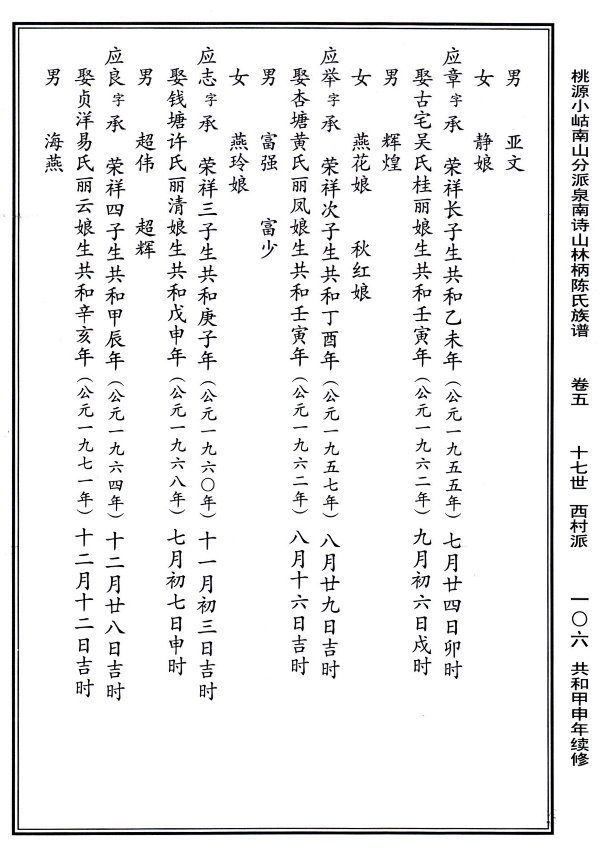 桃源小岵南山分派泉南诗山林柄陈氏族谱 卷五 十七世 西村派 一〇六 共和甲申年续修
男 亚文
女 静娘
应章字承 荣祥长子生共和乙未年（公元一九五五年）七月廿四日卯时
娶古宅吴氏桂丽娘生共和壬寅年（公元一九六二年）九月初六日戌时
男 辉煌
女 燕花娘 秋红娘
应举字承 荣祥次子生共和丁酉年（公元一九五七年）八月廿九日吉时
娶杏塘黄氏丽凤娘生共和壬寅年（公元一九六二年）八月十六日吉时
男 富强 富少
女 燕玲娘
应志字承 荣祥三子生共和庚子年（公元一九六〇年）十一月初三日吉时
娶钱塘许氏丽清娘生共和戊申年（公元一九六八年）七月初七日申时
男 超伟 超辉
应良字承 荣祥四子生共和甲辰年（公元一九六四年）十二月廿八日吉时
娶贞洋易氏丽云娘生共和辛亥年（公元一九七一年）十二月十二日吉时
男 海燕